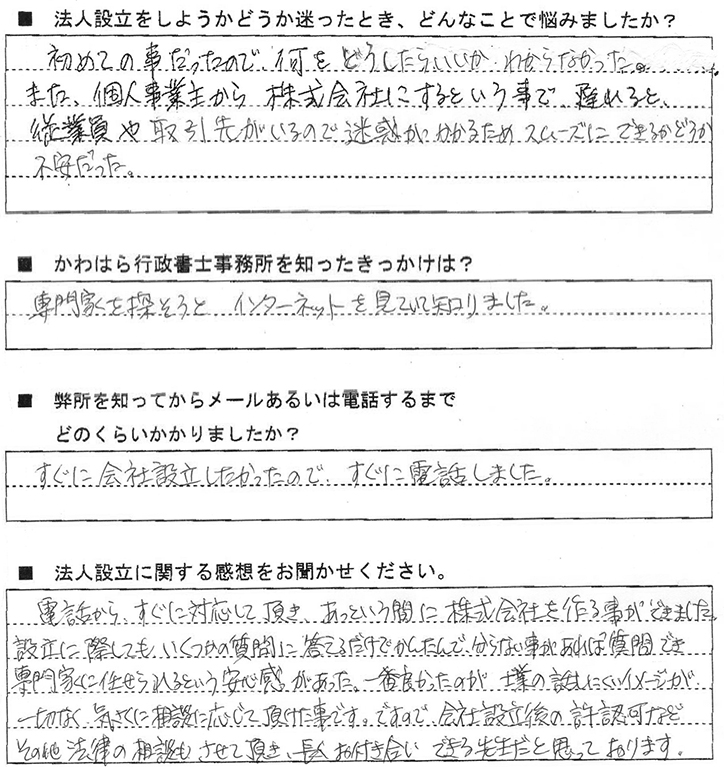 ■ 法人設立をしようかどうか迷ったとき、どんなことで悩みましたか？
初めての事だったので、何をどうしたらいいかわからなかった。
また、個人事業主から株式会社にするという事で遅れると、
従業員や取引先がいるので迷惑がかかるためスムーズにできるかどうか
不安だった。
■ かわはら行政書士事務所を知ったきっかけは？
専門家を探そうとインターネットを見ていて知りました。
■ 弊所を知ってからメールあるいは電話するまで
どのくらいかかりましたか？
すぐに会社設立したかったので、すぐに電話しました。
■ 法人設立に関する感想をお聞かせください。
電話から、すぐに対応して頂き、あっという間に株式会社を作る事ができました。
設立に際しても、いくつかの質問に答えるだけでかんたんで、分らない事があれば質問でき
専門家に任せられるという安心感があった。一番良かったのが士業の話しにくいイメージが
一切なく、気さくに相談に応じて頂けた事です。ですので、会社設立後の許認可など
その他法律の相談もさせて頂き、長くお付き合いできる先生だと思っております。